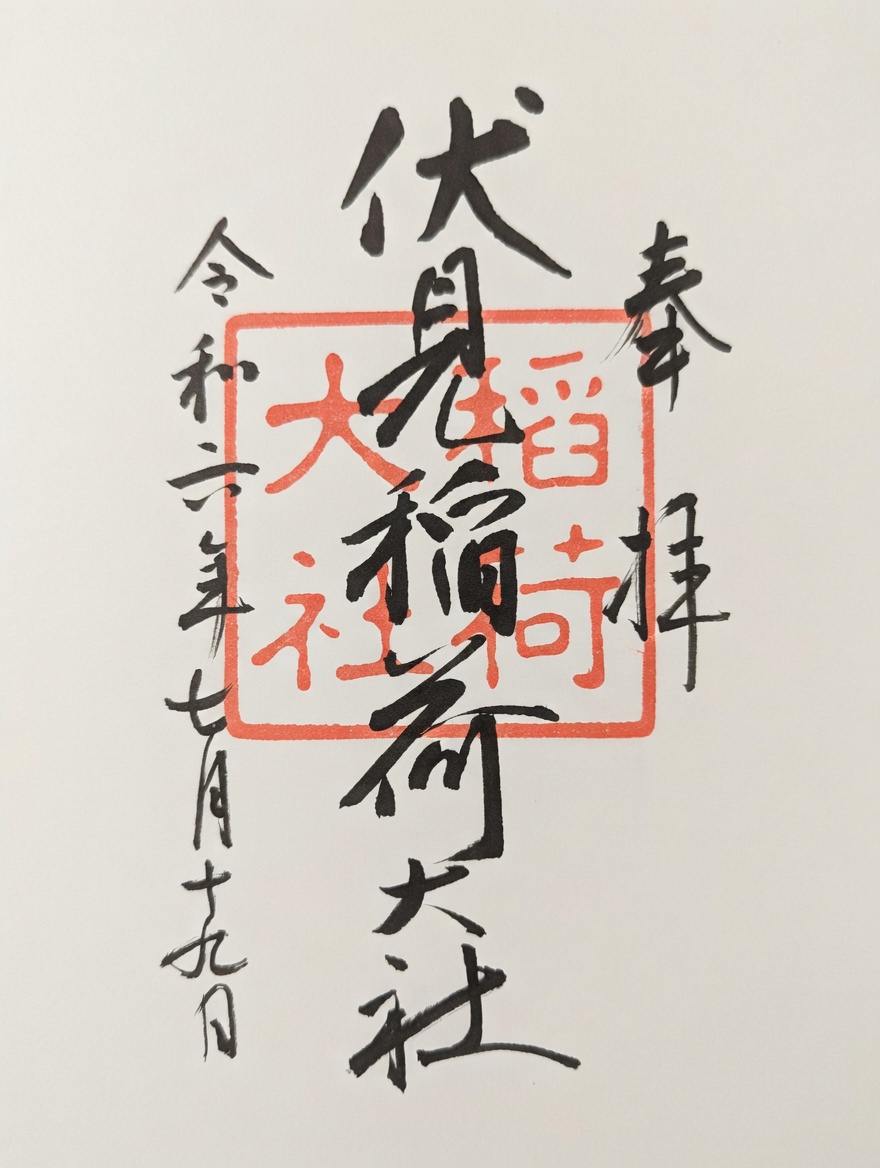 奉拝
伏見稲荷大社
令和六年七月十九日
稲荷
大社